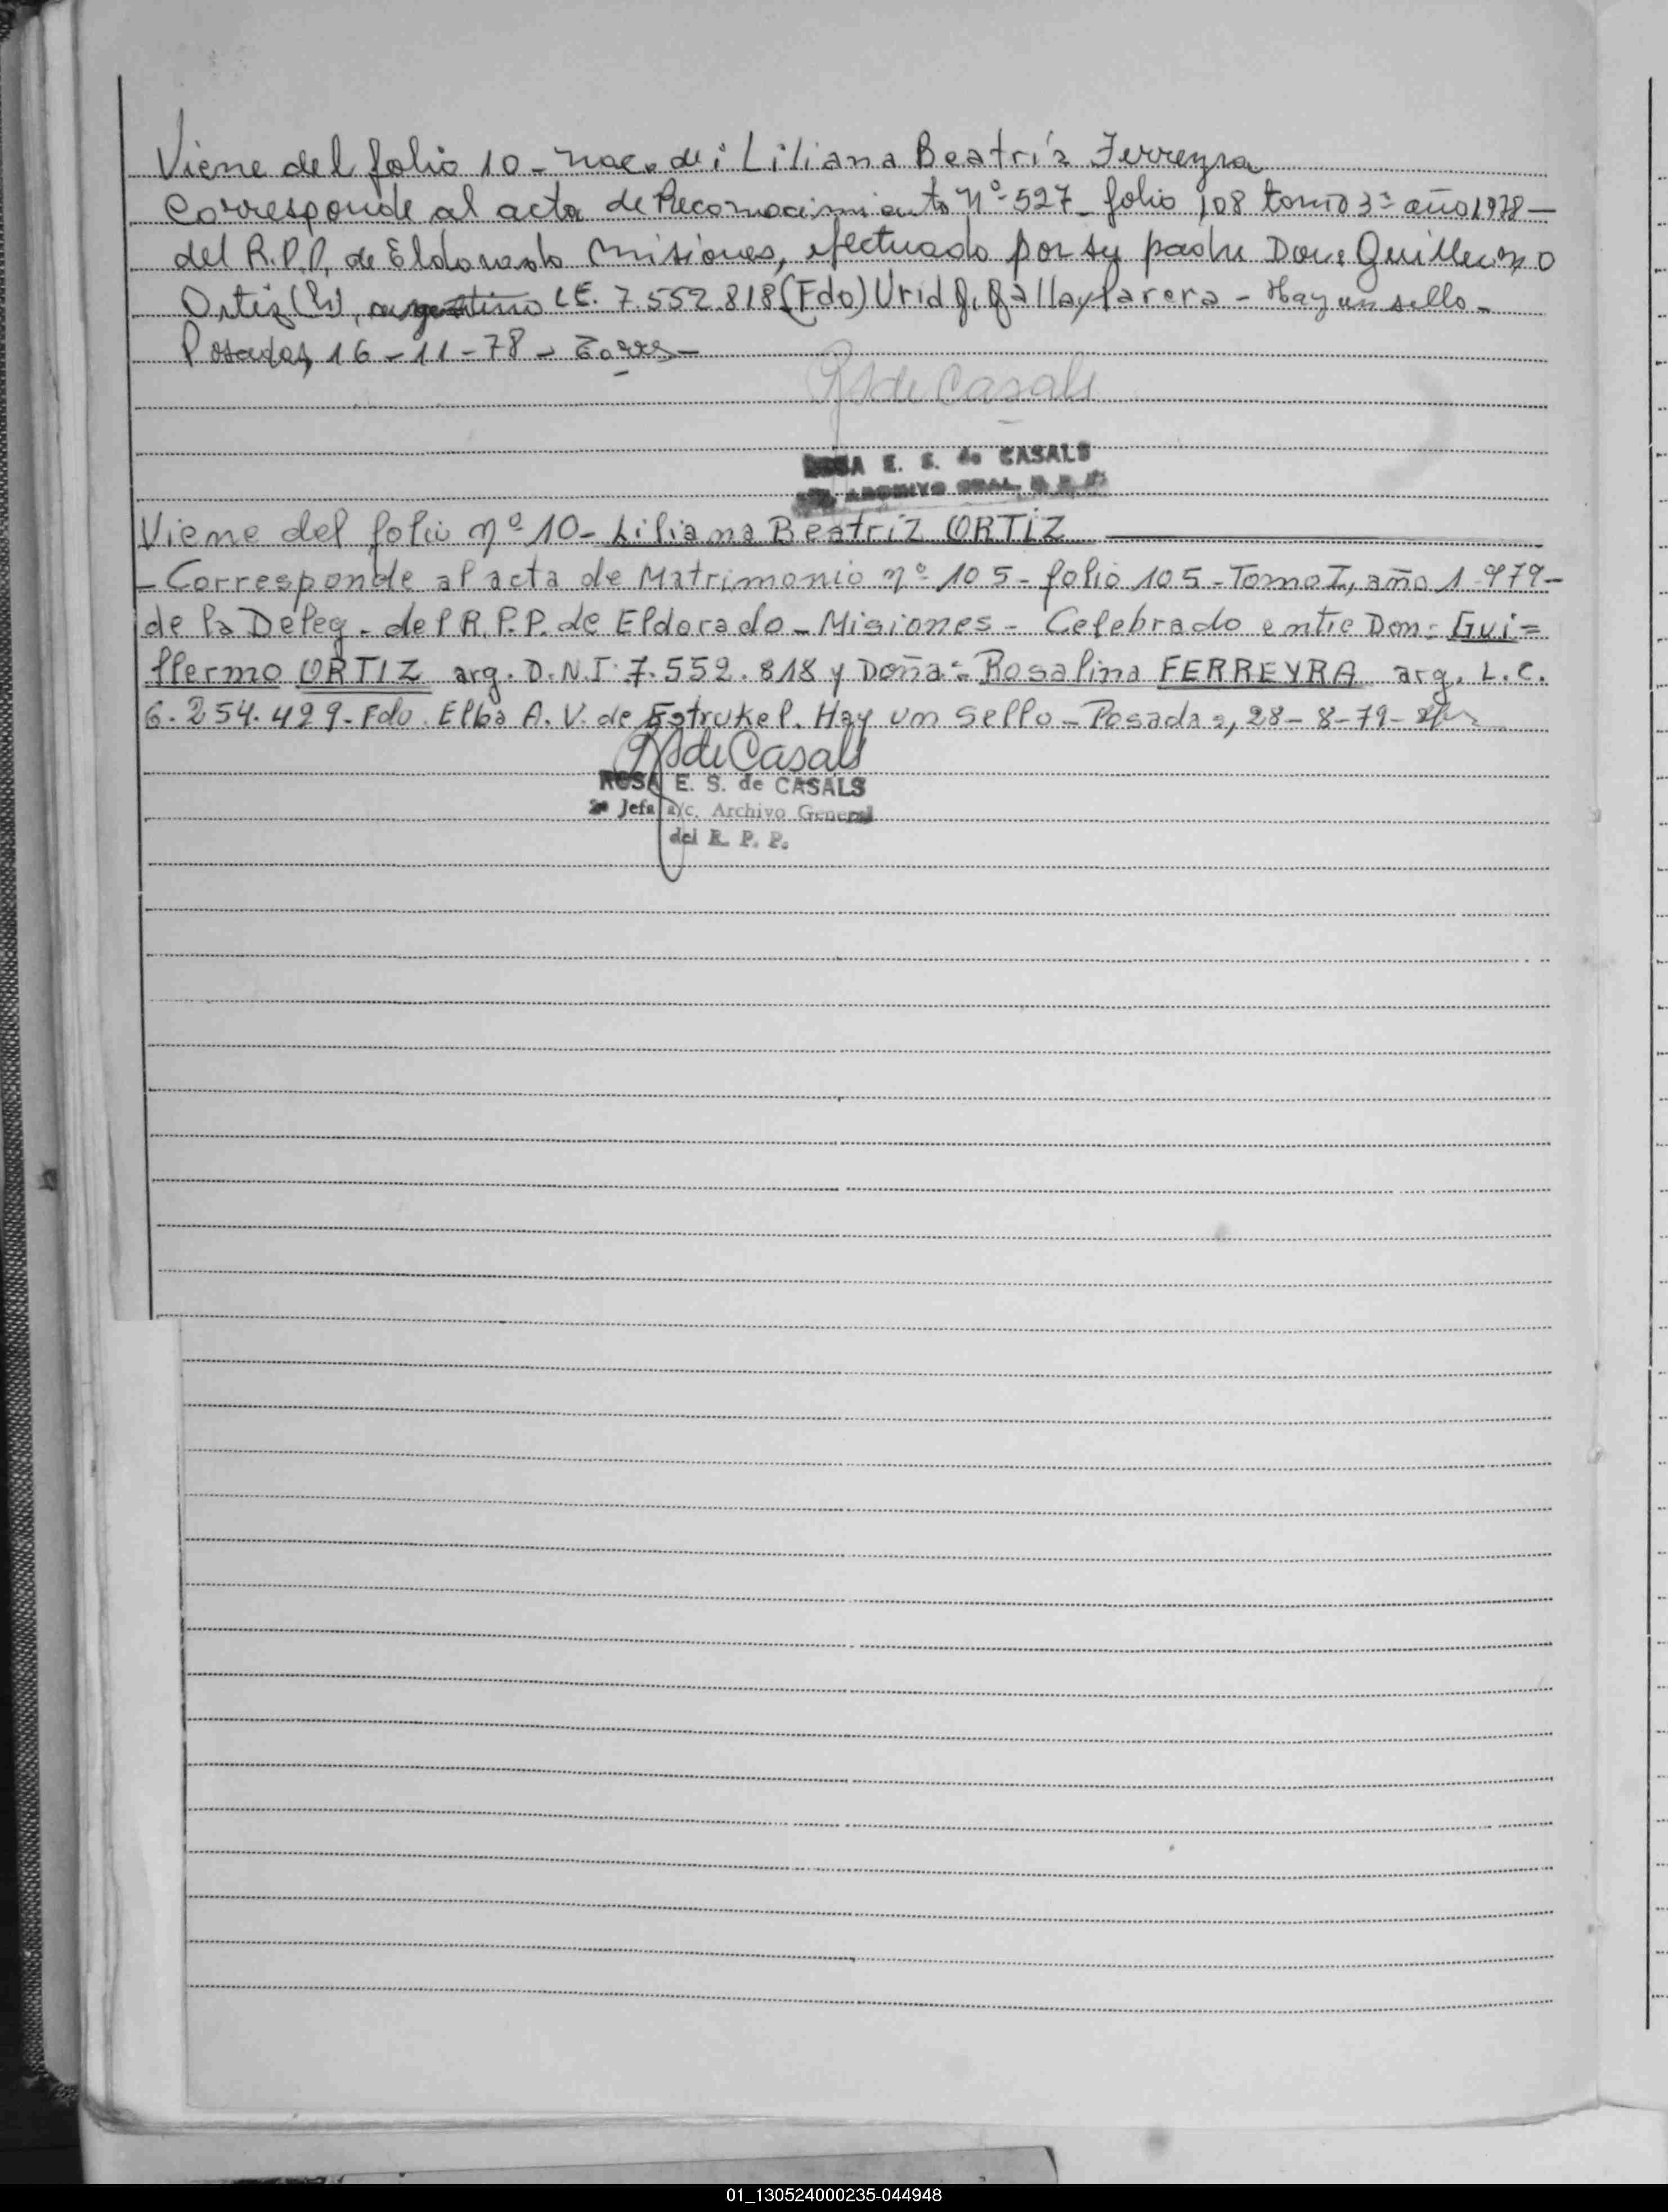 Viene del folio 10 - nac. de: Liliana Beatríz Ferreyra
Corresponde al acta de Reconocimiento Nº 527 - folio 108 tomo 3º año 1978 -
del R.P.P. de Eldorado Misiones, efectuado por su padre Don: Guillermo
Ortiz argentino L.E. 7.552.818 (Fdo) - Hay un sello -
Posadas, 16-11-78 -
RS de Casals
ROSA E. S. de CASALS
ARCHIVO GRAL. R. P. P.
Viene del folio nº 10 - Liliana Beatriz ORTIZ
- Corresponde al acta de Matrimonio nº 105 - folio 105 - Tomo I, año 1.979 -
de la Deleg. del R.P.P. de Eldorado - Misiones - Celebrado entre Don: Gui=
llermo ORTIZ arg. D.N.I 7.552.818 y Doña: Rosalina FERREYRA arg. L.C.
6.254.429 - Fdo. Elba A. V. de Estrukel. Hay un sello - Posadas, 28-8-79 -
RS de Casals
ROSA E. S. de CASALS
Jefa a/c. Archivo General
del R. P. P.
01_130524000235-044948